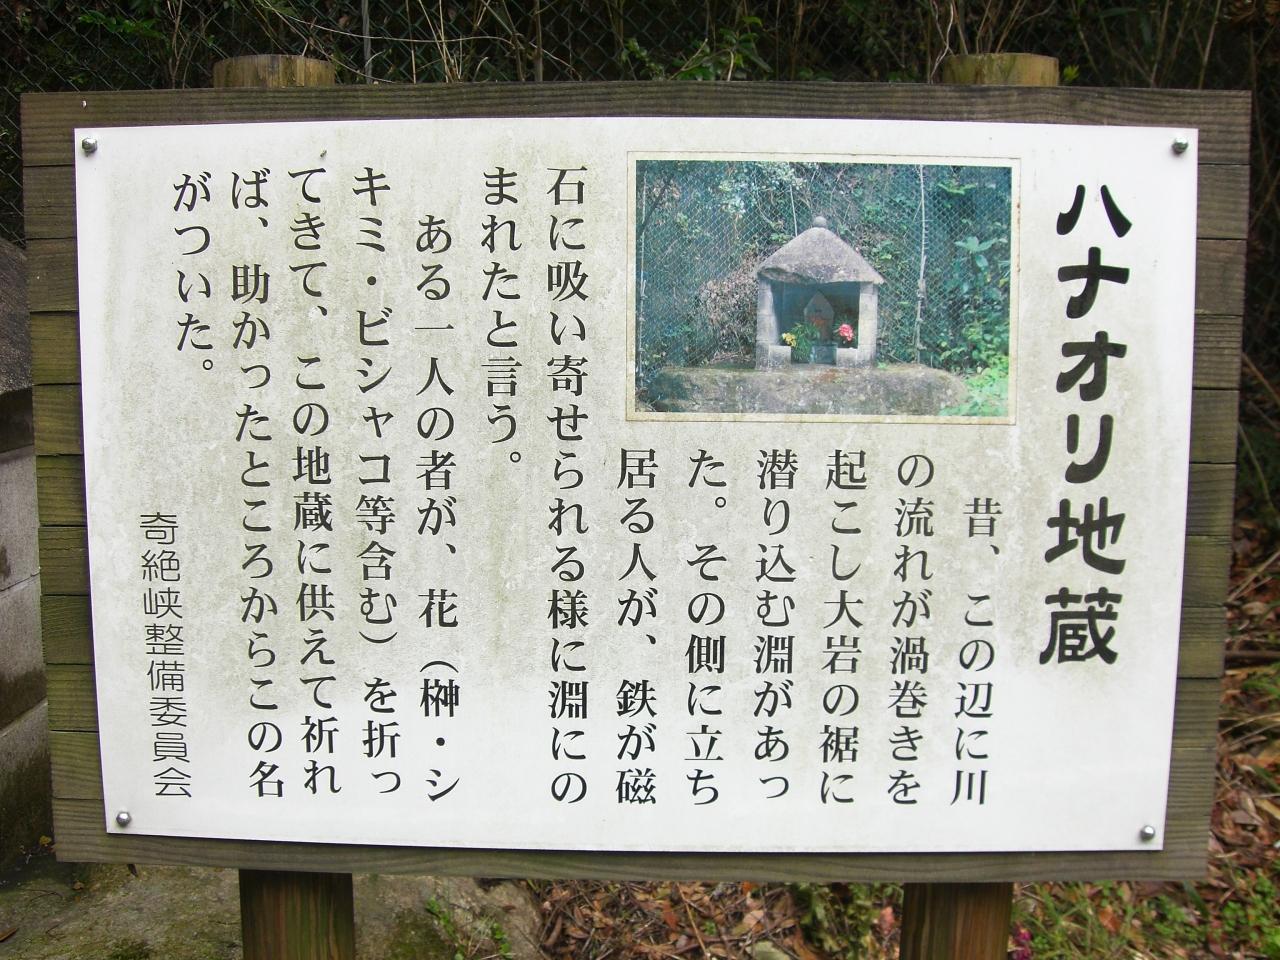 ハナオリ地蔵
昔、この辺に川
の流れが渦巻きを
起こし大岩の裾に
潜り込む淵があっ
た。その側に立ち
居る人が、鉄が磁
石に吸い寄せられる様に淵にの
まれたと言う。
ある一人の者が、花（榊・シ
キミ・ビシャコ等含む）を折っ
てきて、この地蔵に供えて祈れ
ば、助かったところからこの名
がついた。
奇絶峡整備委員会